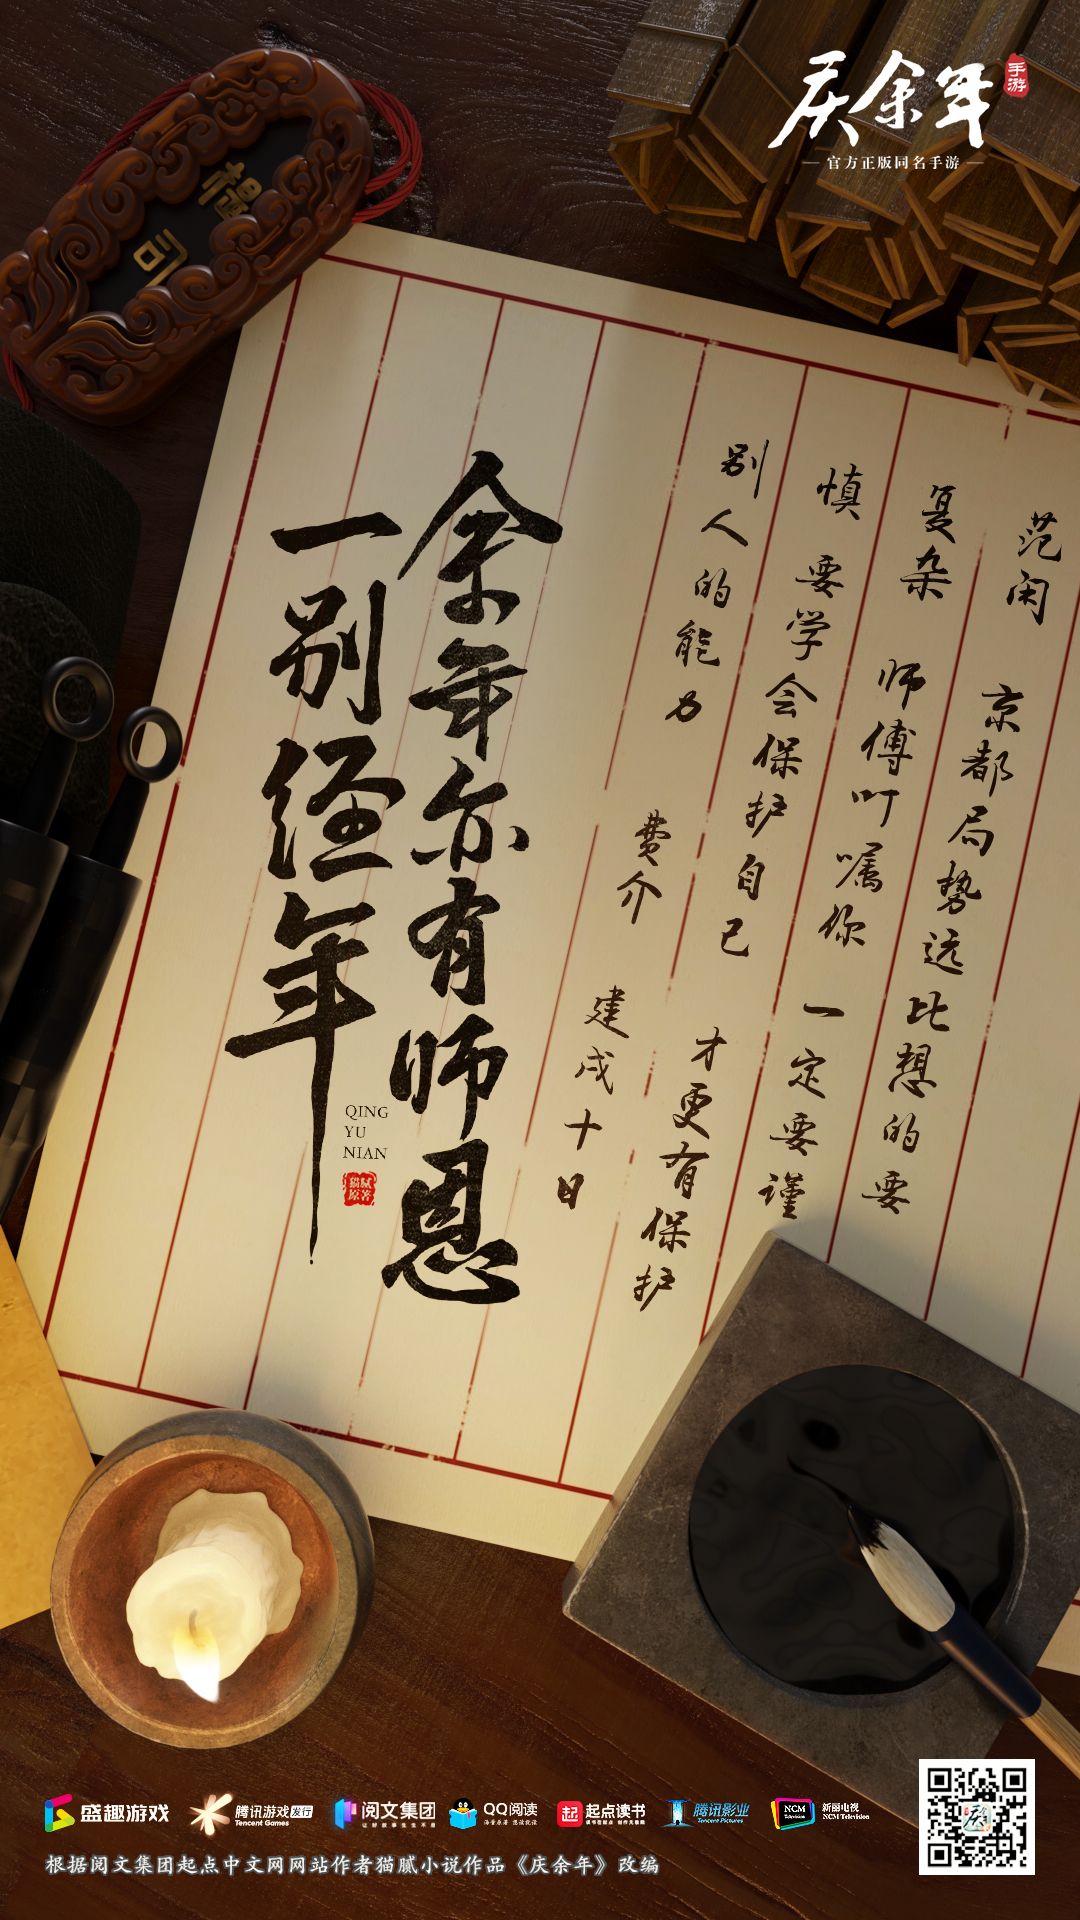 庆余年
手游
官方正版同名手游
提司
范闲 京都局势远比想的要
复杂 师傅叮嘱你 一定要谨
慎 要学会保护自己 才更有保护
别人的能力
费介 建戌十日
余年亦有师恩
一别经年
QING
YU
NIAN
猫腻
原著
盛趣游戏
腾讯游戏 发行
Tencent Games
阅文集团
让好故事生生不息
QQ阅读
海量原著 想读就读
起点读书
腾讯影业
Tencent Pictures
NCM
Television
新丽电视
NCM Television
根据阅文集团起点中文网网站作者猫腻小说作品《庆余年》改编